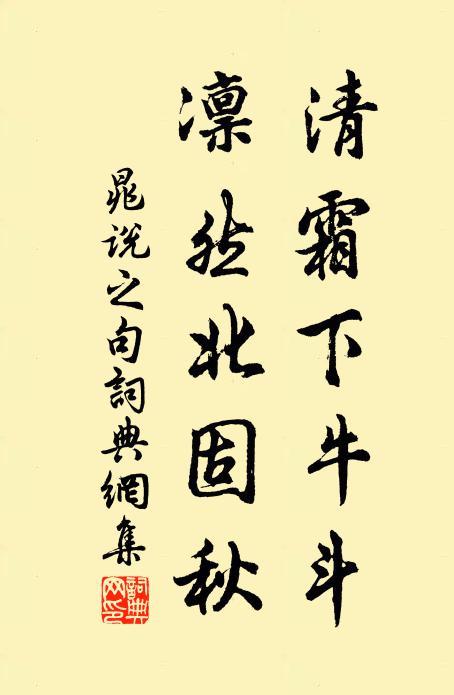 清霜下牛斗
凛然北固秋
晁说之句詞典網集
詞典网印